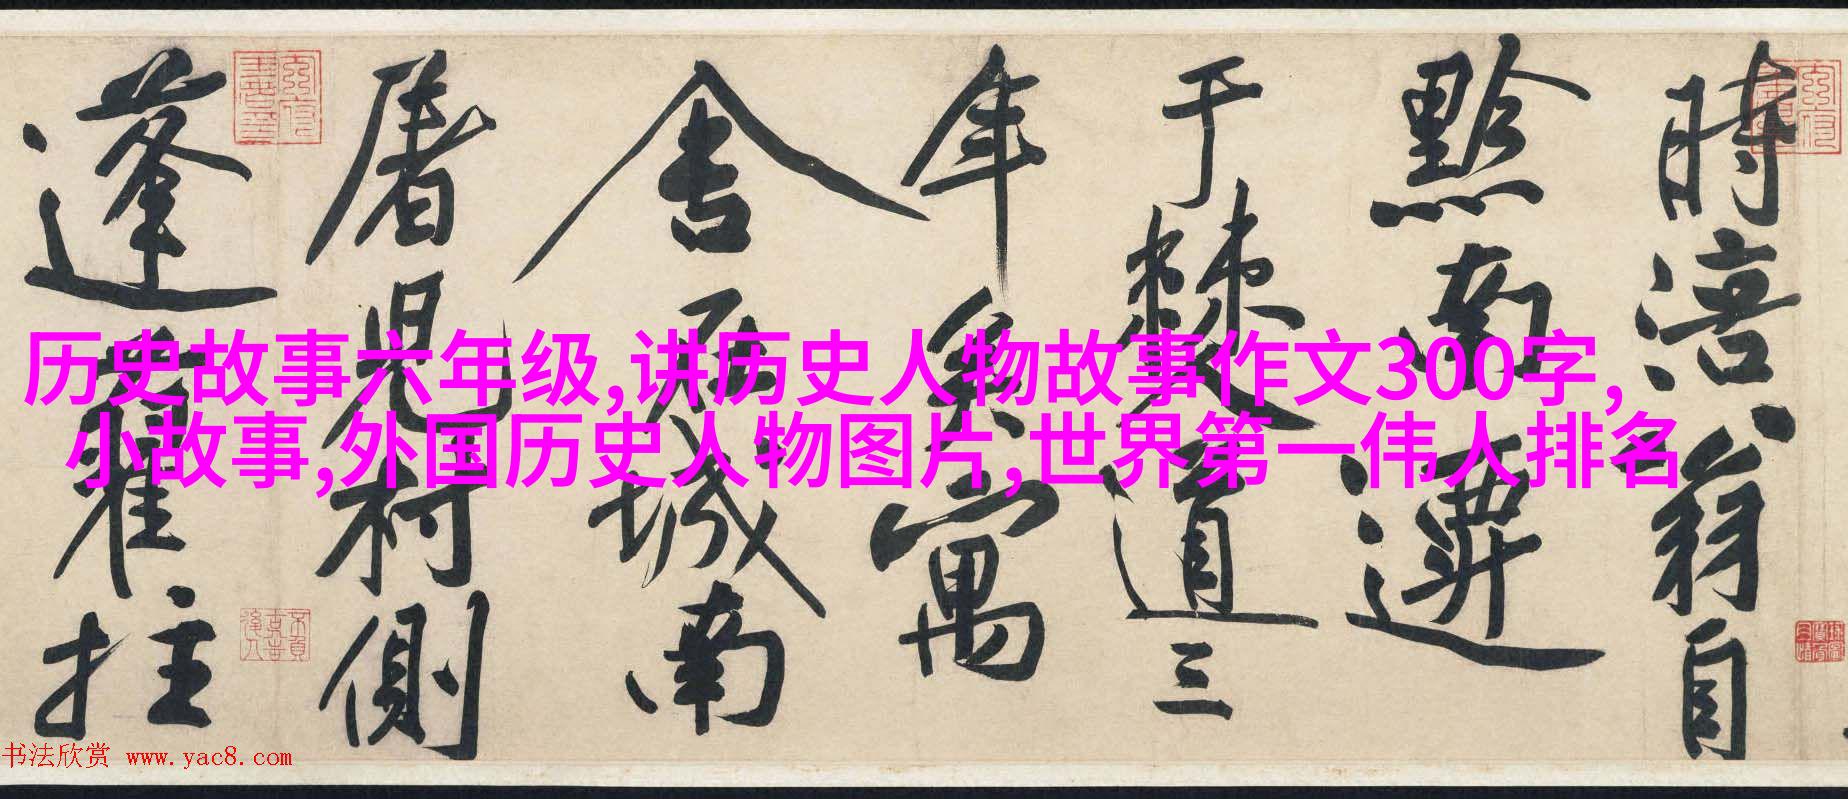 時涪翁自
黔南遷
于僰道三
年矣寓
舍在城南
屠兒村側
蓬藋拄
历史故事六年级,讲历史人物故事作文300字,
小故事,外国历史人物图片,世界第一伟人排名
书法欣赏 www.yac8.com